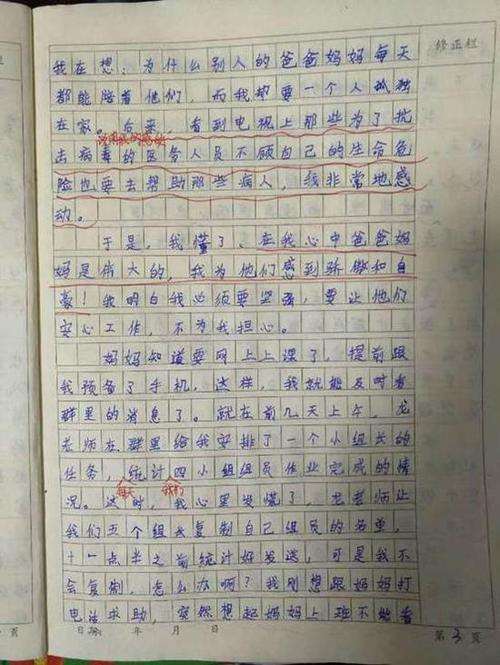 修正栏
我在想：为什么别人的爸爸妈妈每天
都能陪着他们，而我却要一个人孤独
在家。后来，看到电视上那些为了抗
击病毒的医务人员不顾自己的生命危
险也要去帮助那些病人，我非常地感
动。
于是，我懂了、在我心中爸爸妈
妈是伟大的，我为他们感到骄傲和自
豪！我明白我必须要坚强，要让他们
安心工作，不为我担心。
妈妈知道要网上上课了，提前跟
我预备了手机，这样，我就能及时看
群里的消息了。就在前几天上午，龙
老师在群里给我安排了一个小组长的
任务，统计四小组组员作业完成的情
每天 我们
况。这时，我心里发慌了，龙老师让
我们五个组长复制自己组员的名单，
十一点半之前统计好发送，可是我不
会复制，怎么办啊？我刚想跟妈妈打
电话求助，突然想起妈妈上班不能看
日期： 年 月 日 第3页
页